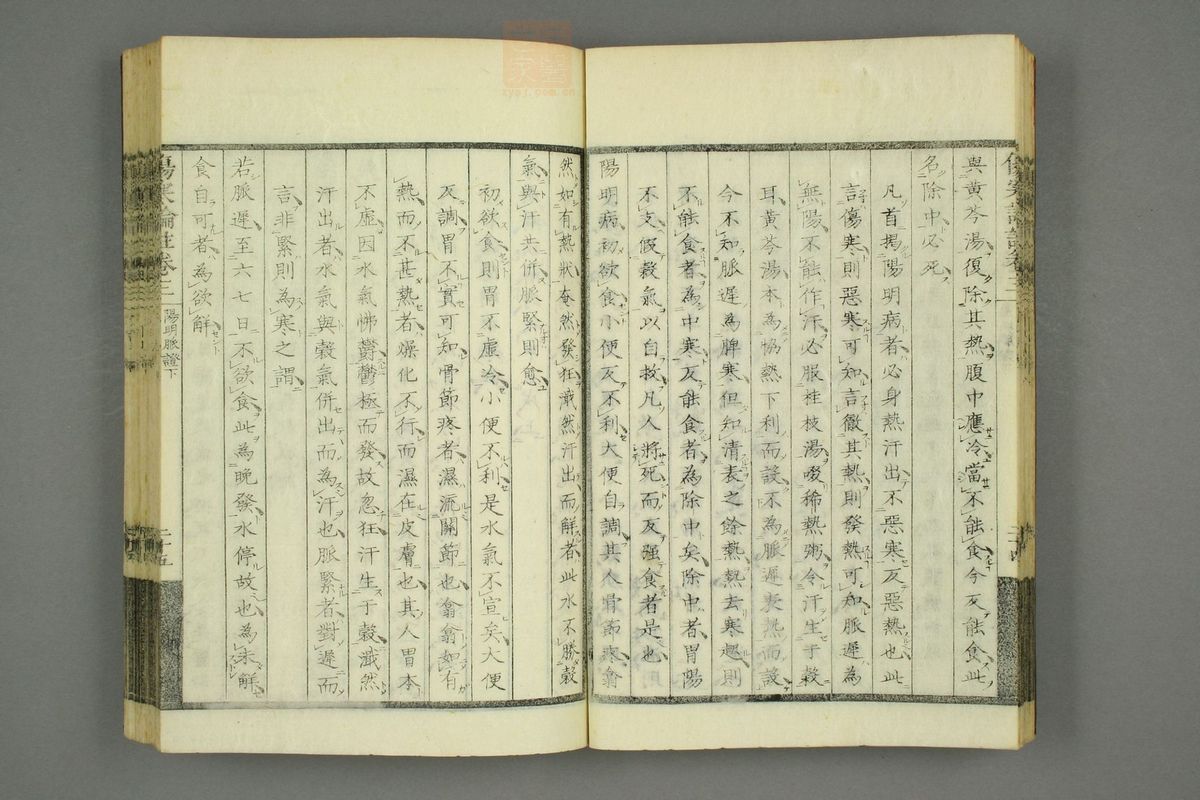 與黃芩湯復除其熱腹中應冷當不能食今反能食此
名除中必死
凡首揭陽明病者必身熱汗出不惡寒反惡熱也此
言傷寒則惡寒可知言徹其熱則發熱可知脈遲為
無陽不能作汗必服桂枝湯啜稀熱粥令汗生于穀
耳黃芩湯本為協熱下利而設不為脈遲表熱而設
今不知脈遲為脾寒但知清表之餘熱熱去寒起則
不能食者為中寒反能食者為除中矣除中者胃陽
不支假穀氣以自救凡人將死而反強食者是也
陽明病初欲食小便反不利大便自調其人骨節疼翕
然如有熱狀奄然發狂濈然汗出而解者此水不勝穀
氣與汗共併脈緊則愈
初欲食則胃不虛冷小便不利是水氣不宣矣大便
反調胃不實可知骨節疼者濕流關節也翕翕如有
熱而不甚熱者燥化不行而濕在皮膚也其人胃本
不虛因水氣怫鬱鬱極而發故忽狂汗生于穀濈然
汗出者水氣與穀氣併出而為汗也脈緊者對遲而
言非緊則為寒之謂
若脈遲至六七日不欲食此為晚發水停故也為未解
食自可者為欲解
傷寒論註卷三
陽明脈證下
二十五